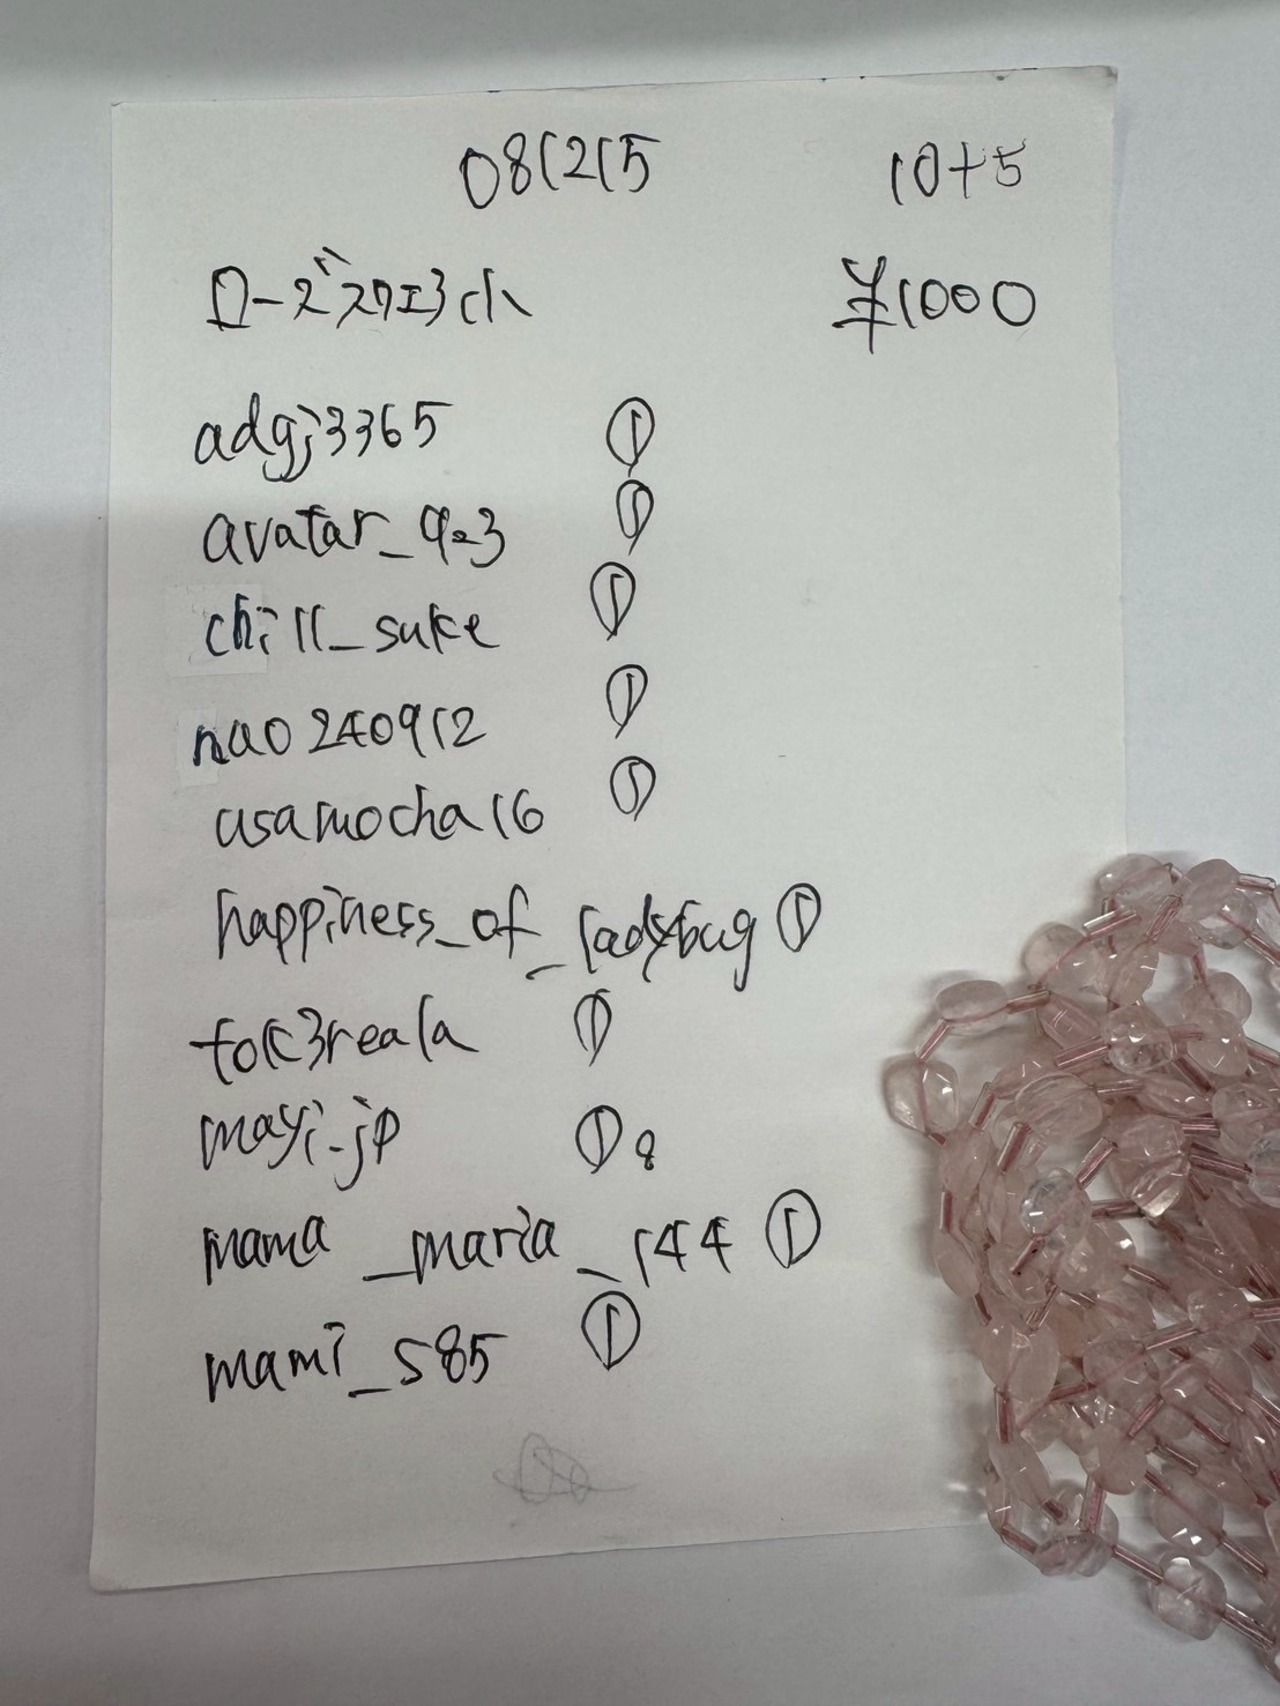 081215 10+5
ローズスクエアカット ¥1000
adgj3365 ①
avatar_9.3 ①
chill_suke ①
nao240912 ①
asamocha16 ①
happiness_of_ladybug ①
tok3reala ①
mayi-jp ① 8
mama_maria_144 ①
mami_s85 ①